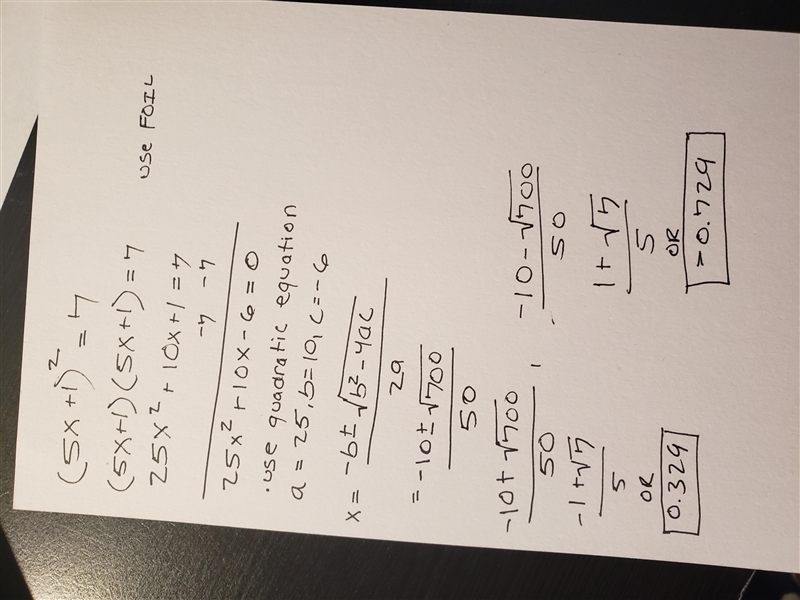 (5x+1)² = 7
(5x+1)(5x+1) = 7 USE FOIL
25x² + 10x + 1 = 7
-7 -7
25x² + 10x - 6 = 0
· use quadratic equation
a = 25, b = 10, c = -6
x = -b ± √b² - 4ac
2a
= -10 ± √700
50
-10 + √700 , -10 - √700
50 50
-1 + √7 1 + √7
5 5
OR OR
0.329 -0.729